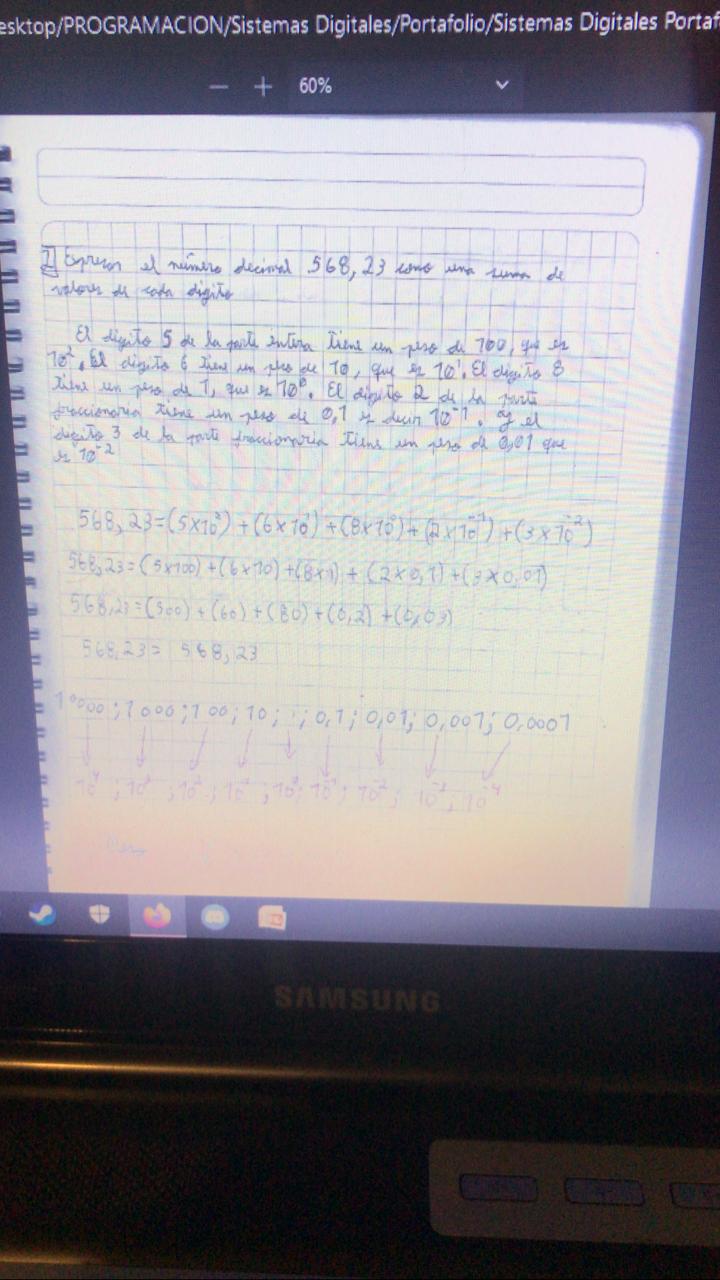 esktop/PROGRAMACION/Sistemas Digitales/Portafolio/Sistemas Digitales Portaf
60%
Expresar el número decimal 568,23 como una suma de
valores de cada digito
El digito 5 de la parte entera tiene un peso de 100, que es
10². El digito 6 tiene un peso de 10, que es 10¹. El digito 8
tiene un peso de 1, que es 10⁰. El digito 2 de la parte
fraccionaria tiene un peso de 0,1 es decir 10⁻¹. y el
digito 3 de la parte fraccionaria tiene un peso de 0,01 que
es 10⁻²
568,23=(5x10²)+(6x10¹)+(8x10⁰)+(2x10⁻¹)+(3x10⁻²)
568,23=(5x100)+(6x10)+(8x1)+(2x0,1)+(3x0,01)
568,23=(500)+(60)+(80)+(0,2)+(0,03)
568,23= 568,23
10000;1000;100;10;1;0,1;0,01;0,001;0,0001
10⁴;10³;10²;10¹;10⁰;10⁻¹;10⁻²;10⁻³;10⁻⁴
SAMSUNG